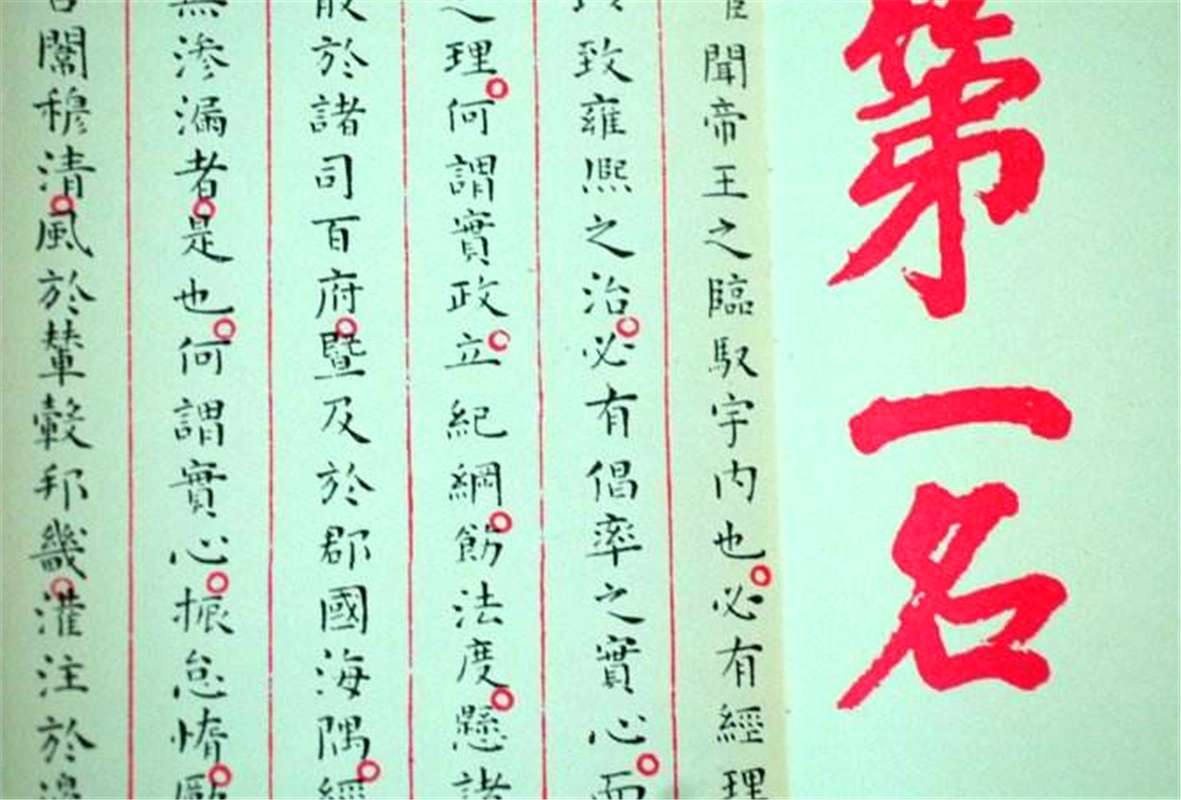 第一名
聞帝王之臨馭宇内也必有經理
致雍熙之治必有倡率之實心而
之理何謂實政立紀綱飭法度懸諸
散於諸司百府暨及於郡國海隅經
無渗漏者是也何謂實心振怠惰勵
闈穆清風於輦轂邦畿灌注於邊